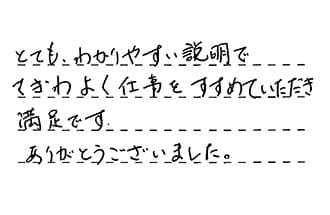 とても、わかりやすい説明で
てぎわよく仕事をすすめていただき
満足です.
ありがとうございました。